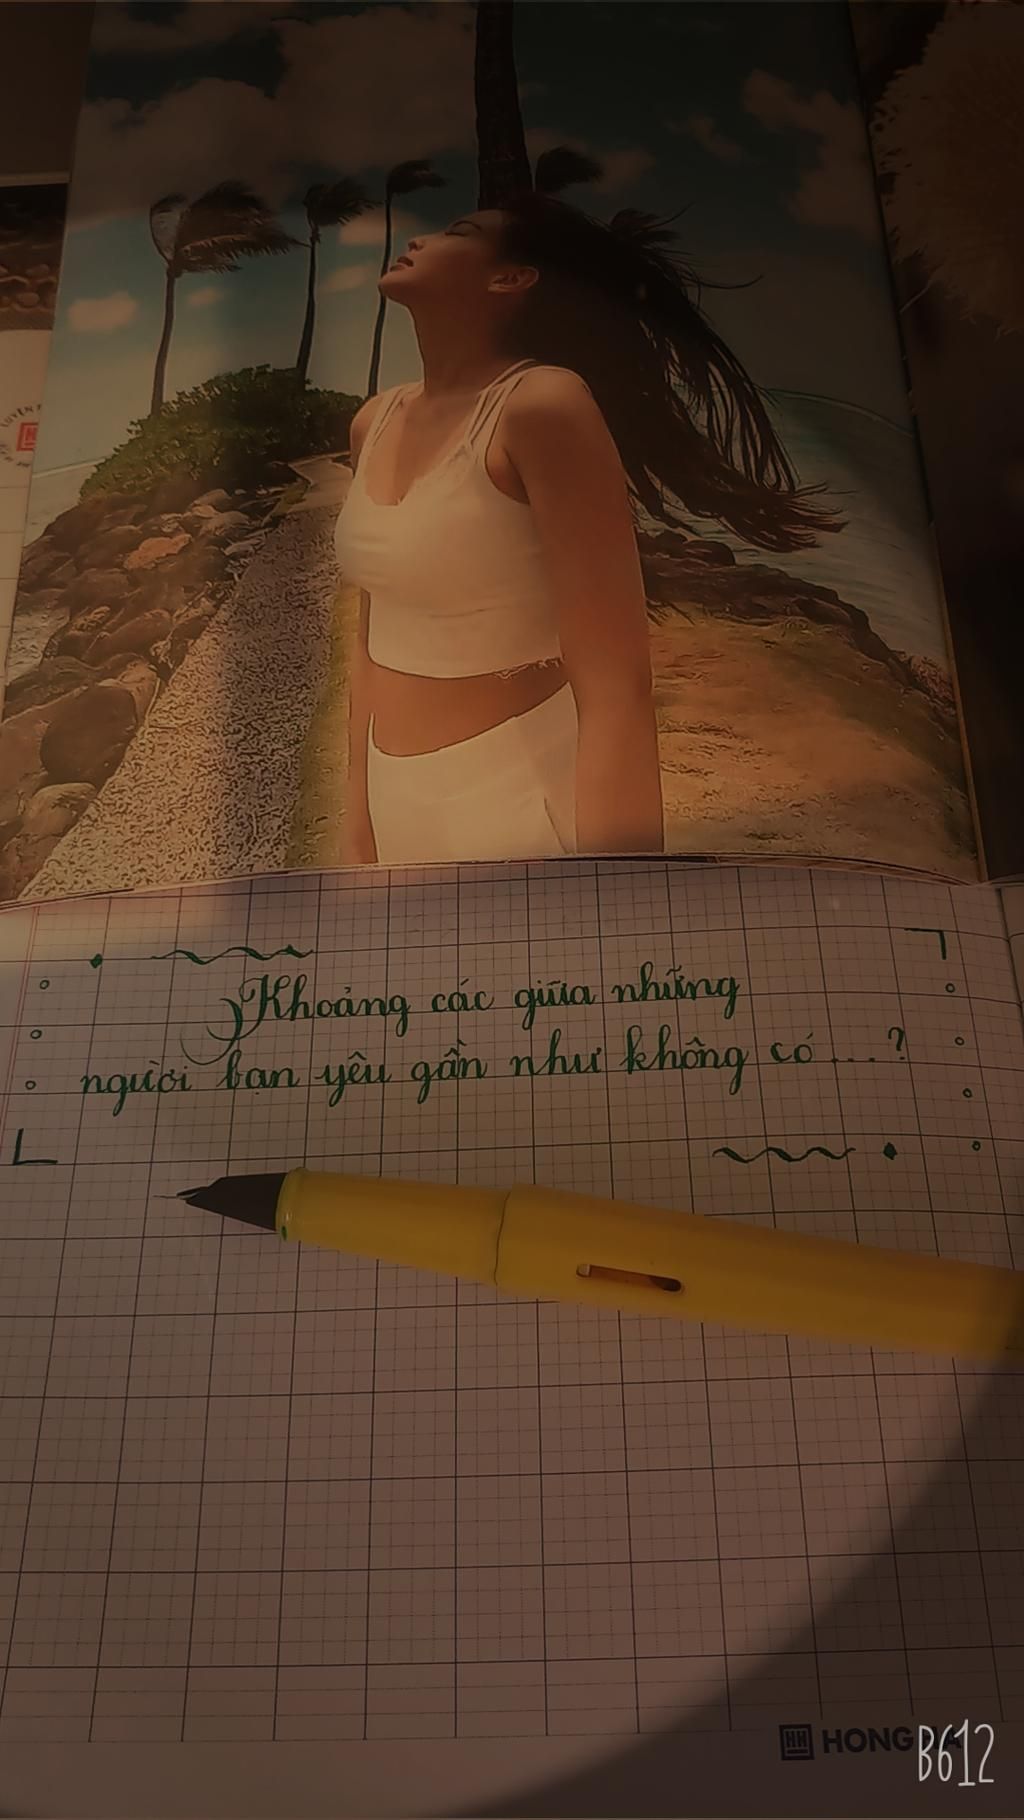 Khoảng các giữa những
người bạn yêu gần như không có ... ?
HONG HA
B612